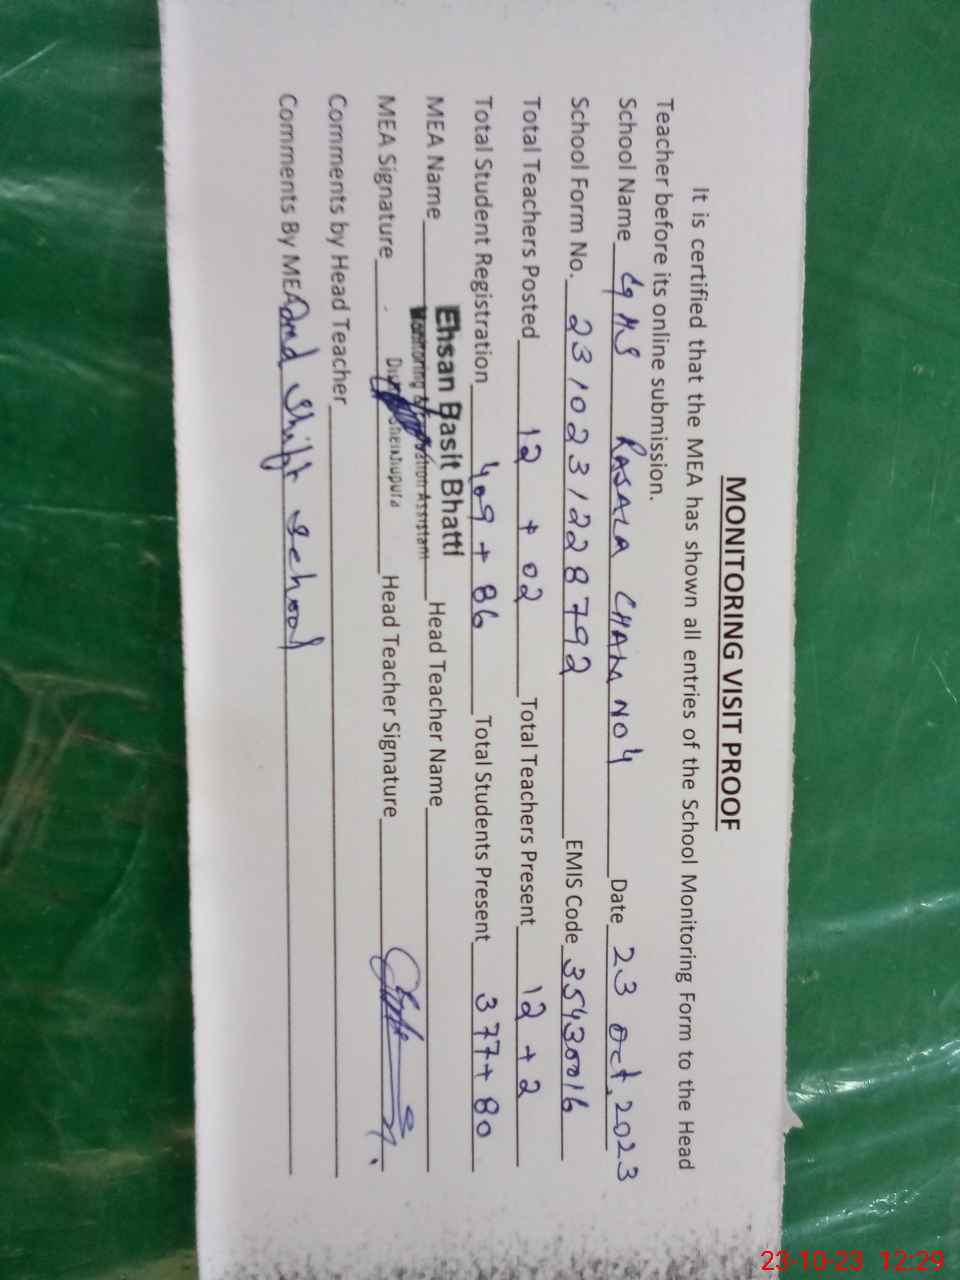 MONITORING VISIT PROOF
It is certified that the MEA has shown all entries of the School Monitoring Form to the Head
Teacher before its online submission.
School Name GHS RASALA CHAK NO 4 Date 23 Oct, 2023
School Form No. 231023122 8792 EMIS Code 35430016
Total Teachers Posted 12 + 02 Total Teachers Present 12 + 2
Total Student Registration 409 + 86 Total Students Present 377 + 80
MEA Name Ehsan Basit Bhatti Head Teacher Name
Monitoring & Assistant
MEA Signature Head Teacher Signature
Comments by Head Teacher
Comments By MEA 2nd Shift school
23-10-23 12:29